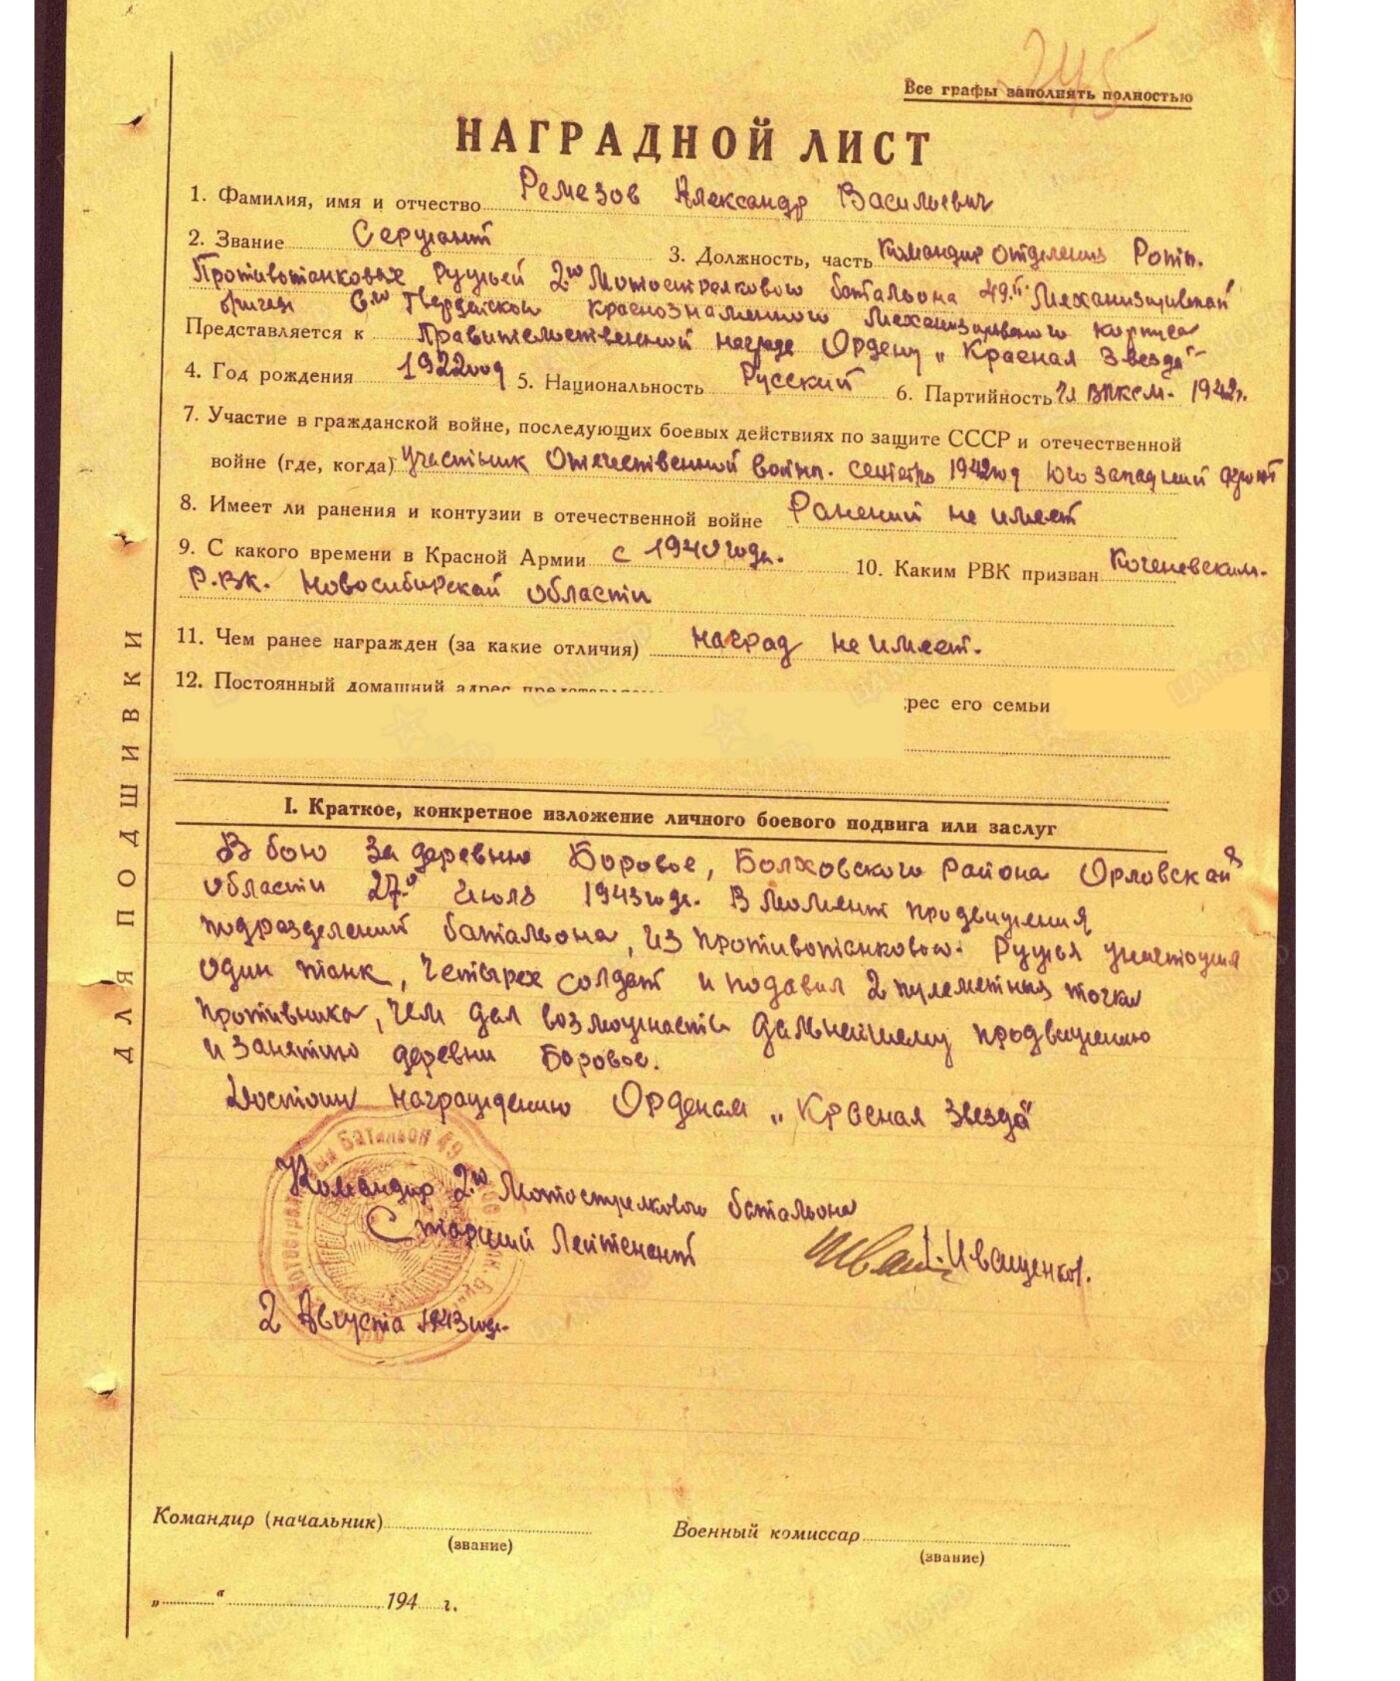 245
Все графы заполнять полностью
НАГРАДНОЙ ЛИСТ
1. Фамилия, имя и отчество Ремезов Александр Васильевич
2. Звание Сержант 3. Должность, часть Командир отделения Роты.
Противотанковых Ружьей 2го Мотострелкового батальона 49.й Механизированной
бригады 6го Гвардейского Краснознаменного Механизированного корпуса
Представляется к Правительственной награде Ордену „Красная Звезда"
4. Год рождения 1922 год 5. Национальность Русский 6. Партийность Чл ВЛКСМ. 1942г.
7. Участие в гражданской войне, последующих боевых действиях по защите СССР и отечественной
войне (где, когда) участник Отечественной войны. сентябрь 1942 год Юго западный фронт
8. Имеет ли ранения и контузии в отечественной войне Ранений не имеет
9. С какого времени в Красной Армии с 1940 года. 10. Каким РВК призван Коченевским.
Р.В.К. Новосибирской области
11. Чем ранее награжден (за какие отличия) наград не имеет.
12. Постоянный домашний адрес
рес его семьи
I. Краткое, конкретное изложение личного боевого подвига или заслуг
В бою за деревню Боровое, Болховского района Орловской
области 27го Июля 1943 года. В момент продвижения
подразделений батальона, из противотанкового. Ружья уничтожил
один танк, четырех солдат и подавил 2 пулеметных точки
противника, чем дал возможность дальнейшему продвижению
и занятию деревни Боровое.
Достоин награждению Орденом „Красная Звезда"
Командир 2го Мотострелкового батальона
Старший Лейтенант Иващенко.
2 Августа 1943 года.
Командир (начальник)
(звание)
Военный комиссар
(звание)
„ " 194 г.
ДЛЯ ПОДШИВКИ